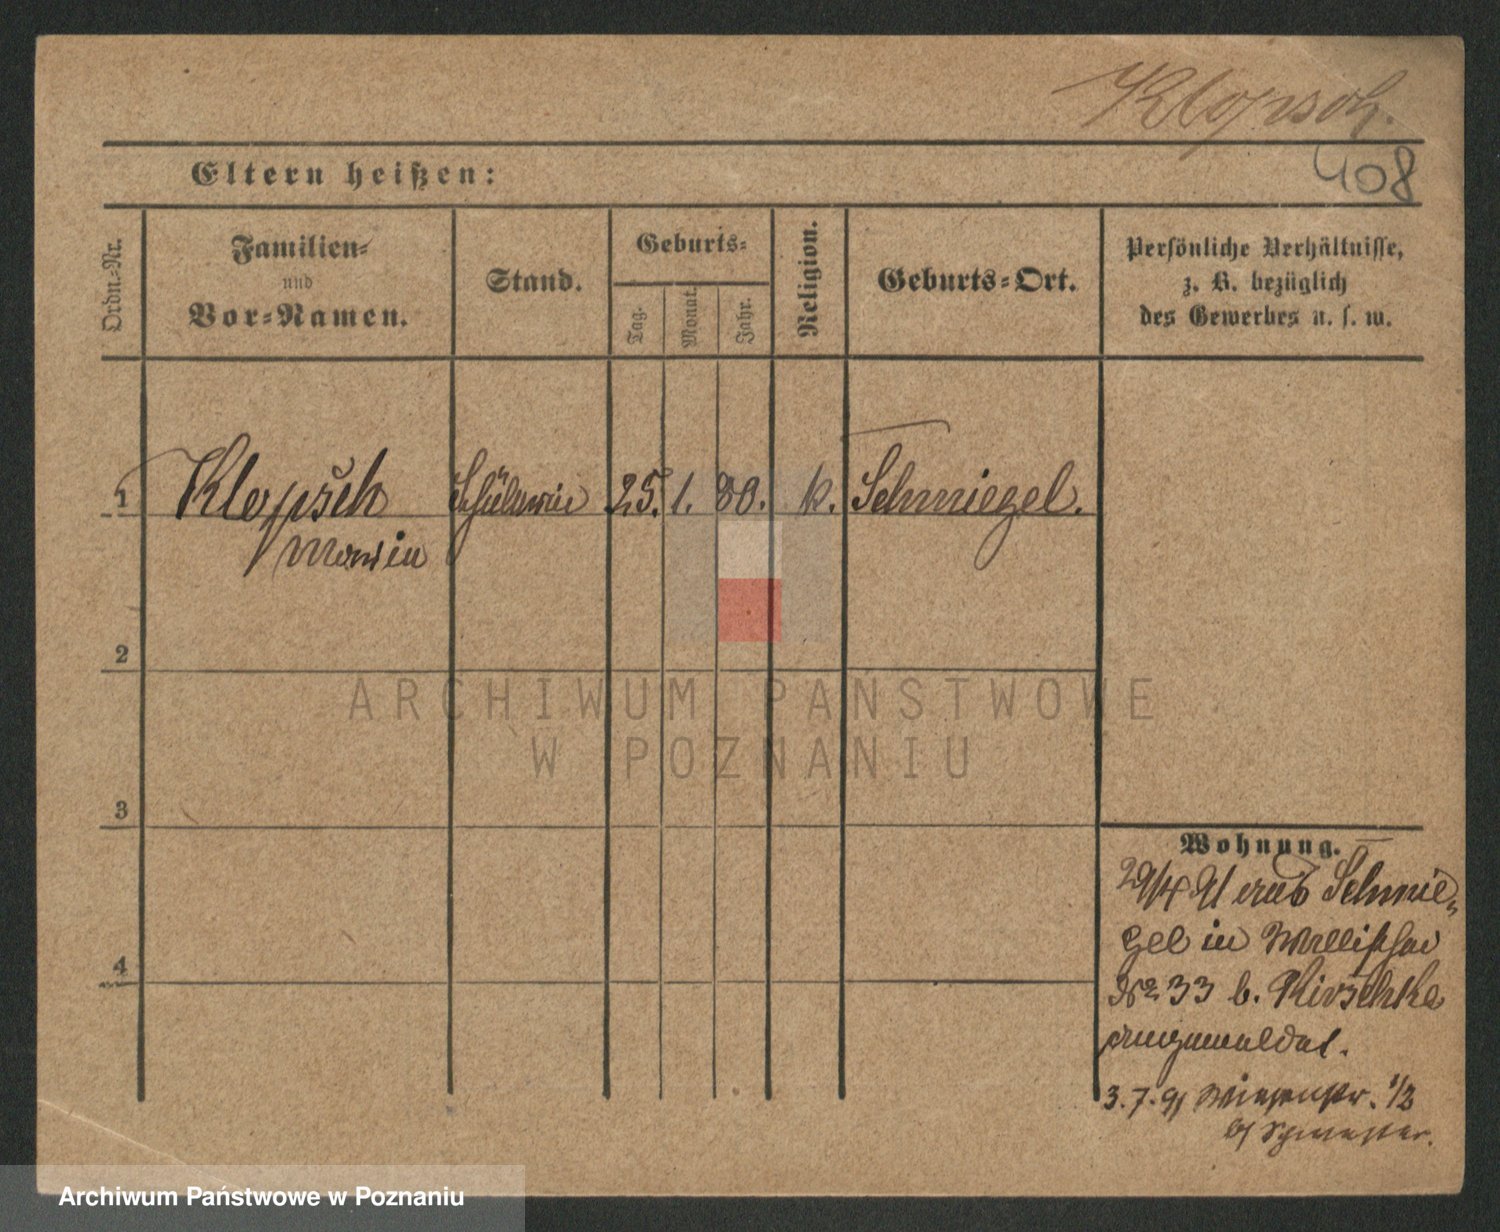 Klopsch.
408
Eltern heißen:
Ordn.-Nr.
Familien-
und
Vor-Namen.
Stand.
Geburts-
Tag.
Monat.
Jahr.
Religion.
Geburts-Ort.
Persönliche Verhältnisse,
z. B. bezüglich
des Gewerbes u. s. w.
1 Klopsch Schülerin 25. 1. 80. k. Schmiegel.
Maria
2
3
4
ARCHIWUM PAŃSTWOWE
W POZNANIU
Wohnung.
29/4 91 aus Schmie-
gel in Wallischei
No 33 b. Kirschke
angemeldet.
3.7.91 Wiesenstr. 1/2
b/ Schwester.
Archiwum Państwowe w Poznaniu